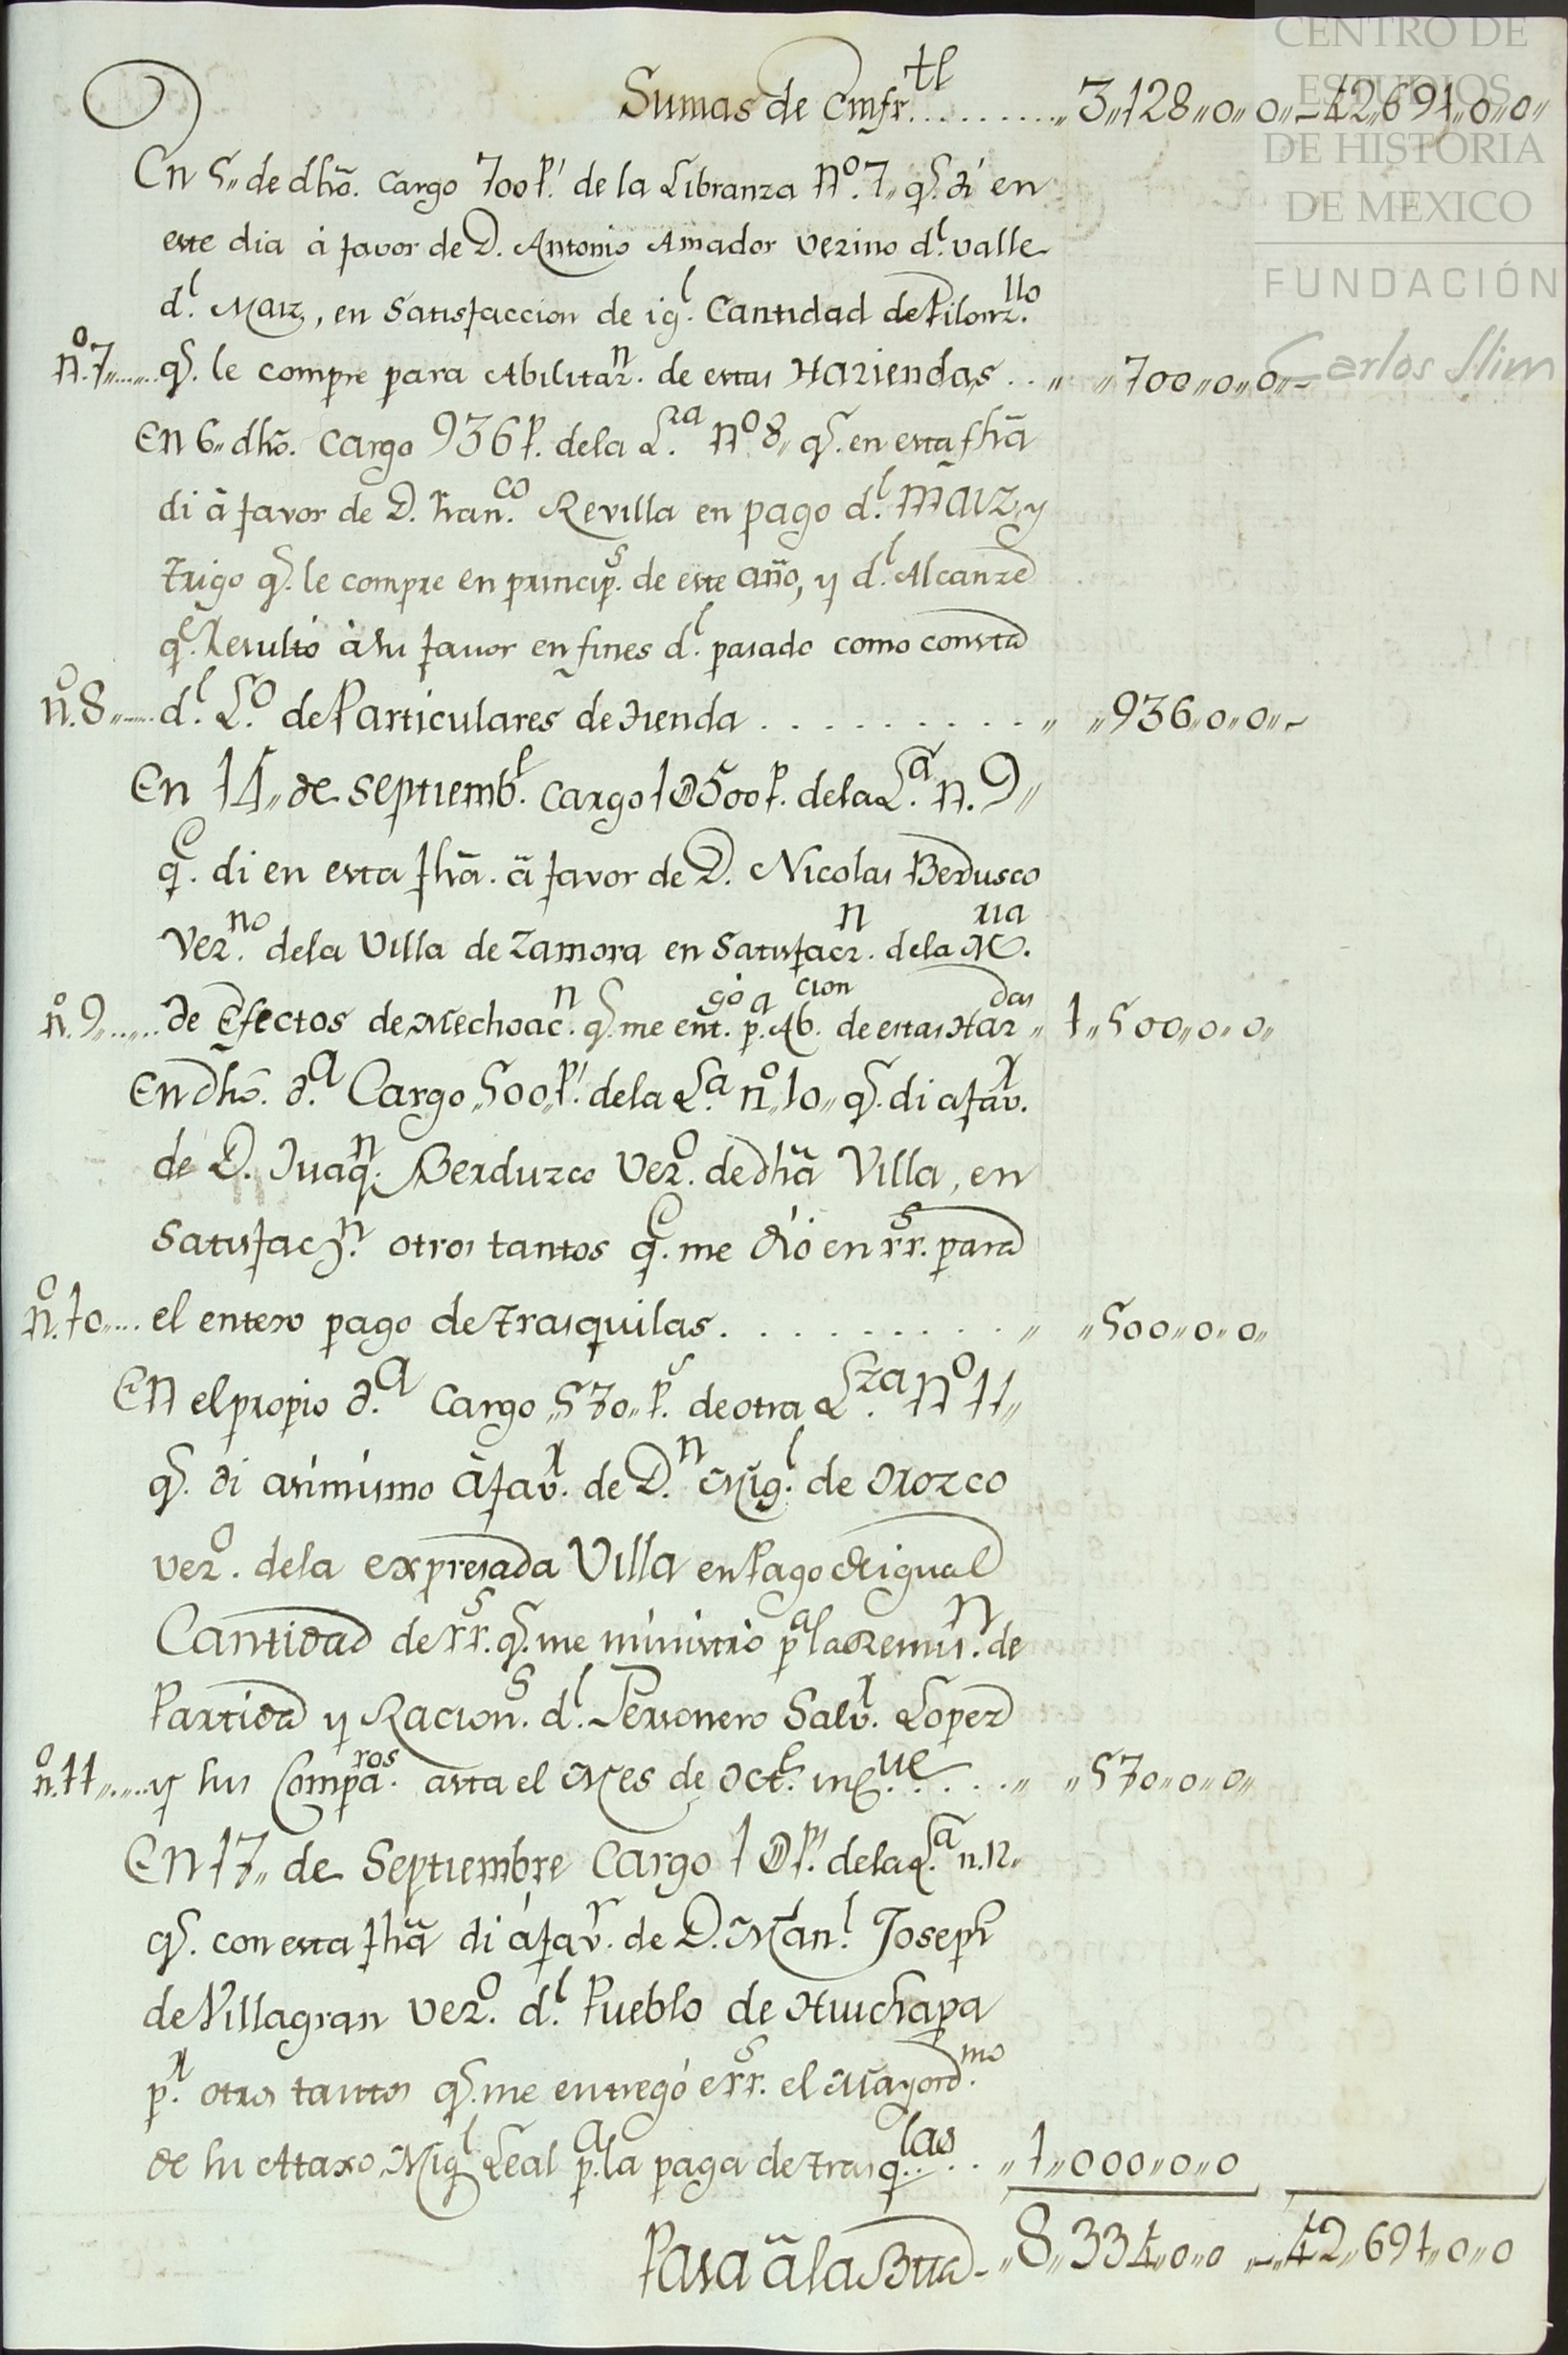 CENTRO DE
ESTUDIOS
DE HISTORIA
DE MEXICO
FUNDACIÓN
Carlos Slim
Sumas de Enfr.tl .......... 3,,128,,0,,0,,-42,,691,,0,,0,,
En 5,, de dho. Cargo 700 p.s de la Libranza N.o 7,, q.e di en
este dia à favor de D. Antonio Amador vezino d.l valle
d.l Maiz, en Satisfaccion de ig.l Cantidad de Pilonz.llo
n.o 7,,...... q.e le compre para Abilitaz.n de estas Haziendas . . ,, ,,700,,0,,0,,-
En 6,, dho. Cargo 936 p. de la L.za N.o 8,, q.e en esta fha
di à favor de D. Fran.co Revilla en pago d.l Maiz, y
trigo q.e le compre en princip.s de este año, y d.l Alcanze
q.e Resultó à su favor en fines d.l pasado como consta
n.o 8,,...... d.l L.o de Particulares de tienda . . . . . . . . . . ,, ,,936,,0,,0,,-
En 14,, de Septiemb.e cargo 1@500 p. de la L.a n. 9,,
q.e di en esta fha. à favor de D. Nicolas Berdusco
Vez.no de la Villa de Zamora en Satisfacz.n de la M.ria
n.o 9,...... de Efectos de Mechoac.n q.e me ent.gó p.a Ab.cion de estas Haz.das ,, 1,,500,,0,,0,,
En dho. d.a Cargo ,,500,, p.s de la L.a n.o 10,, q.e di a fav.r
de D. Juaq.n Berduzco Vez.o de dha Villa, en
Satisfacz.n otros tantos q.e me dió en rr.s para
n.o 10,.... el entero pago de trasquilas . . . . . . . . . . ,, ,,500,,0,,0,,
En el propio d.a Cargo ,,570,, p.s de otra L.za N.o 11,,
q.e di asimismo à fav.r de D.n Mig.l de Orozco
vez.o de la expresada Villa en Pago de igual
Cantidad de rr.s q.e me ministró p.a la Remis.n de
Partida y Racion.s d.l Personero Salv.r Lopez
n.o 11,,..... y sus Compa.ros asta el Mes de Oct.e incl.ue . . . . ,, ,,570,,0,,0,,
En 17,, de Septiembre Cargo 1@ p.s de la L.a n. 12,,
q.e con esta fha di à fav.r de D. Man.l Joseph
de Villagran vez.o d.l Pueblo de Huichapa
p.r otros tantos q.e me entregó e rr.s el Mayord.mo
de su Ataxo, Mig.l Leal p.a la paga de trasq.las . . . ,,1,,000,,0,,0
Pasa à la Btta - ,,8,,334,,0,,0 ,,-42,,691,,0,,0